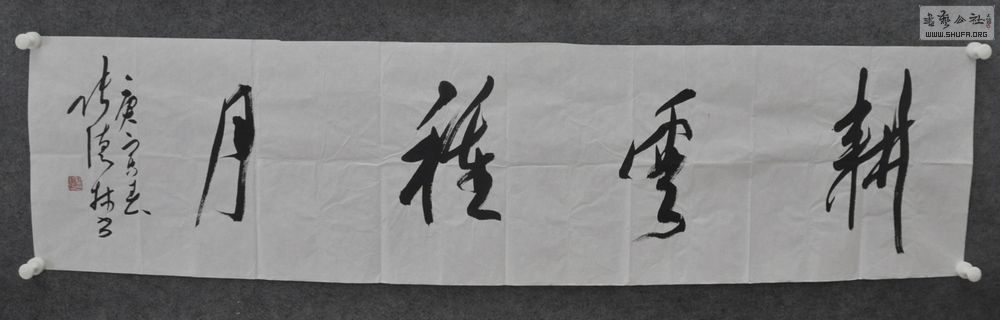 耕雲種月
庚寅春
張德林書
書藝公社
WWW.SHUFA.ORG